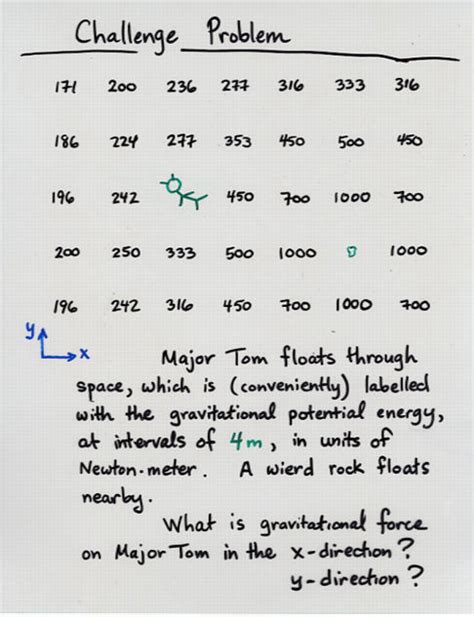 Challenge Problem
171 200 236 277 316 333 316
186 224 277 353 450 500 450
196 242 450 700 1000 700
200 250 333 500 1000 1000
196 242 316 450 700 1000 700
y
x
Major Tom floats through
space, which is (conveniently) labelled
with the gravitational potential energy,
at intervals of 4m, in units of
Newton-meter. A wierd rock floats
nearby.
What is gravitational force
on Major Tom in the x-direction?
y-direction?